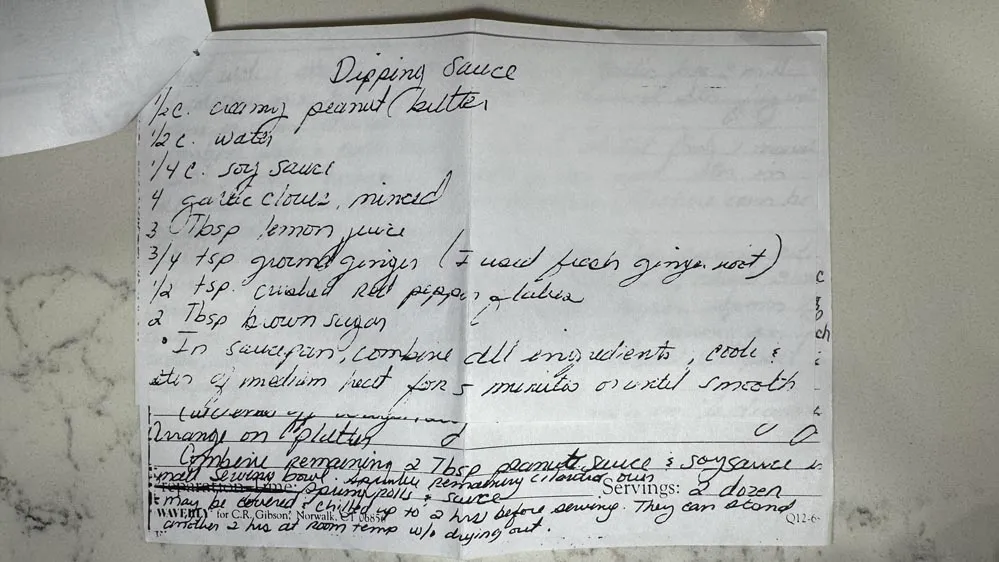 Dipping Sauce
1/2 c. creamy peanut butter
1/2 c. water
1/4 c. soy sauce
4 garlic cloves, minced
3 Tbsp lemon juice
3/4 tsp ground ginger (I used fresh ginger root)
1/2 tsp. crushed red pepper flakes
2 Tbsp brown sugar
• In saucepan, combine all ingredients, cook &
stir of medium heat for 5 minutes or until smooth
Arrange on platter
Combine remaining 2 Tbsp peanut sauce & soy sauce in
small serving bowl. Sprinkle remaining cilantro over
Preparation Time: spring rolls & sauce Servings: 2 dozen
may be covered & chilled up to 2 hrs before serving. They can stand
WAVERLY for C.R. Gibson, Norwalk, CT 06856 Q12-6
another 2 hrs at room temp w/o drying out.